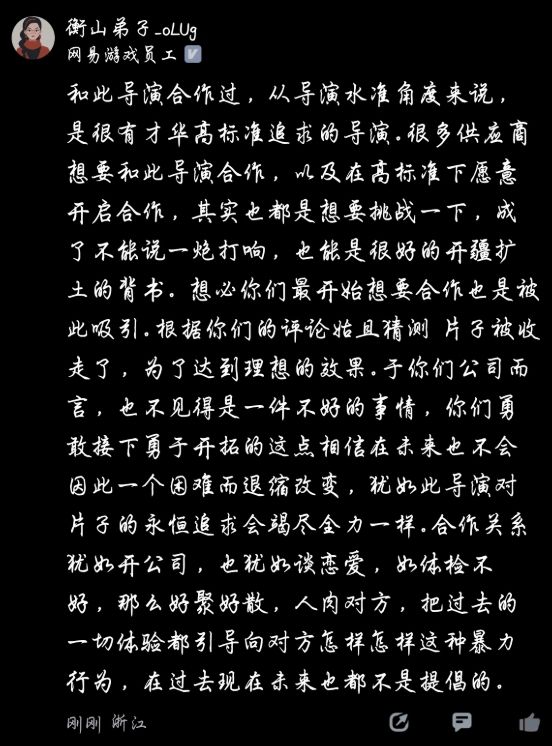 衡山弟子_oLUg
网易游戏员工
和此导演合作过，从导演水准角度来说，
是很有才华高标准追求的导演.很多供应商
想要和此导演合作，以及在高标准下愿意
开启合作，其实也都是想要挑战一下，成
了不能说一炮打响，也能是很好的开疆扩
土的背书。想必你们最开始想要合作也是被
此吸引.根据你们的评论姑且猜测 片子被收
走了，为了达到理想的效果.于你们公司而
言，也不见得是一件不好的事情，你们勇
敢接下勇于开拓的这点相信在未来也不会
因此一个困难而退缩改变，犹如此导演对
片子的永恒追求会竭尽全力一样.合作关系
犹如开公司，也犹如谈恋爱，如体检不
好，那么好聚好散，人肉对方，把过去的
一切体验都引导向对方怎样怎样这种暴力
行为，在过去现在未来也都不是提倡的。
刚刚 浙江